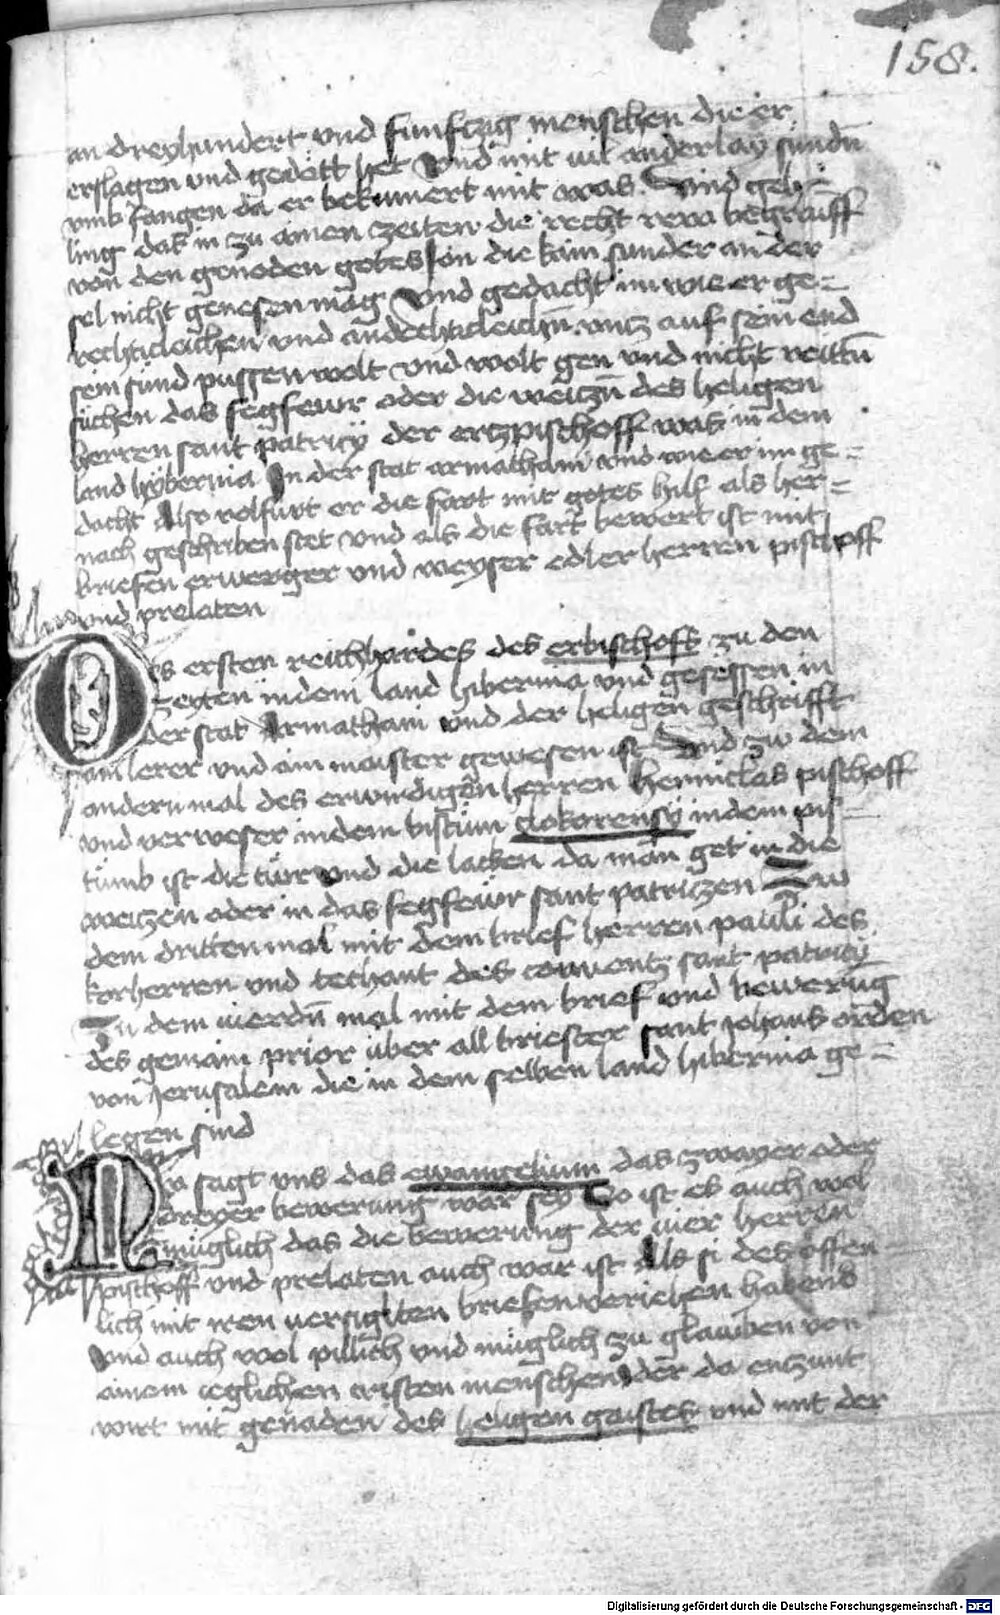 158.
an dreyhundert vnd funfczig menschen die er
erslagen vnd gedött het Vnd mit vil anderlay sündn̄
vmb fangen da er bekumert mit was. Vnd geb=
ling dak in zu ainen zeiten die recht rew begraüff
von den genoden gotes son die kain sunder an der
sel nicht genesen mag Vnd gedacht im wie er ge=
rechticleichen vnd andechticleichn̄ vntz auf sein end
sein sünd pussen wolt vnd wolt gen vnd nicht reittn̄
süchen das fegfewr oder die weitzn̄ des heligen
herren sant patricij der ertzpischoff was in dem
land hybernia In der stat armathani vnd wie er im ge=
dacht Also volfurt er die fart mit gotes hilf als her=
nach geschriben stet vnd als die fart bewert ist mit
briefen erwerger vnd weyser edler herren pischoff
vnd prelaten
Des ersten reichhardes des erbischofs zu den
zeyten in dem land hibernia vnd gesessen in
der stat Armathani vnd der heligen geschrifft
ain lerer vnd ain maister gewesen ist Vnd zw dem
andern mal des erwirdigen herren herrniclas pischoff
vnd verweser in dem bistüm clokorensy in dem pis=
tümb ist die tür vnd die lacken da man get in die
weitzen oder in das fegfewr sant patritzen Zw
dem dritten mal mit dem brief herren pauli des
korherren vnd techant des conuentz sant patricij
Zu dem vierdn̄ mal mit dem brief vnd bewerüg
des gemain prior über all briester sant johans orden
von Jerusalem die in dem selben land hibernia ge=
legen sind
Nu sagt vns das ewangelium das zwayer oder
dreyer bewerung war sey So ist es auch wol
müglich das die bewerung der vier herren
pischoff vnd prelaten auch war ist Als si des offen
lich mit iren versiglten briefen veriehen habend
Vnd auch wol pillich vnd müglich zu glauben von
ainem ieglichen cristen menschen der da enzunt
wirt mit genaden des heligen gaistes vnd mit der
Digitalisierung gefördert durch die Deutsche Forschungsgemeinschaft - DFG